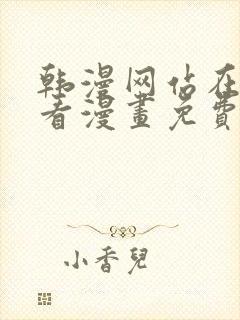 韩漫网站在
看漫畫免費
小香兒